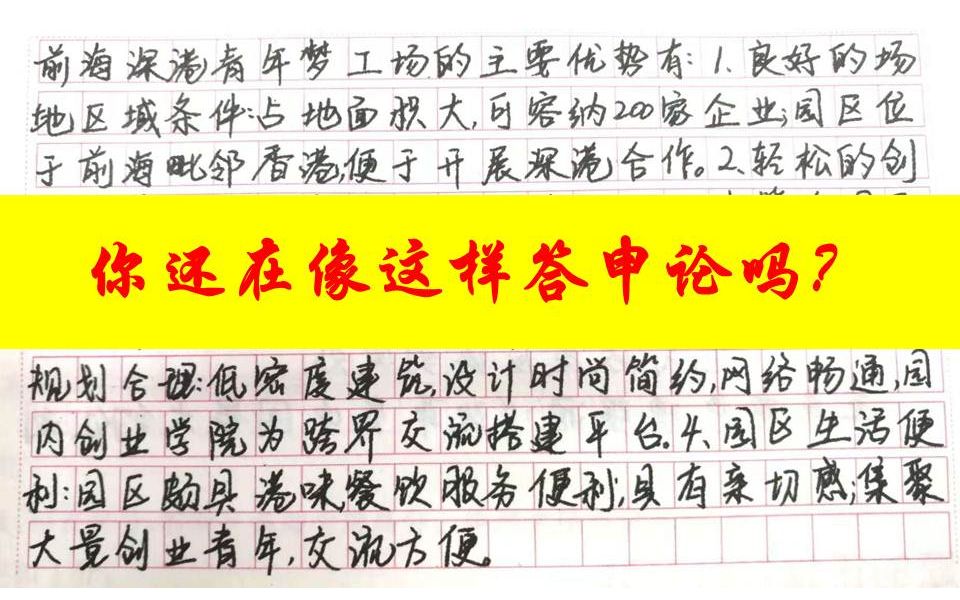 前海深港青年梦工场的主要优势有:1、良好的场
地区域条件:占地面积大,可容纳200家企业;园区位
于前海毗邻香港,便于开展深港合作。2、轻松的创
你还在像这样答申论吗?
规划合理:低密度建筑,设计时尚简约,网络畅通,园
内创业学院为跨界交流搭建平台。4、园区生活便
利:园区颇具港味,餐饮服务便利,具有亲切感;集聚
大量创业青年,交流方便。